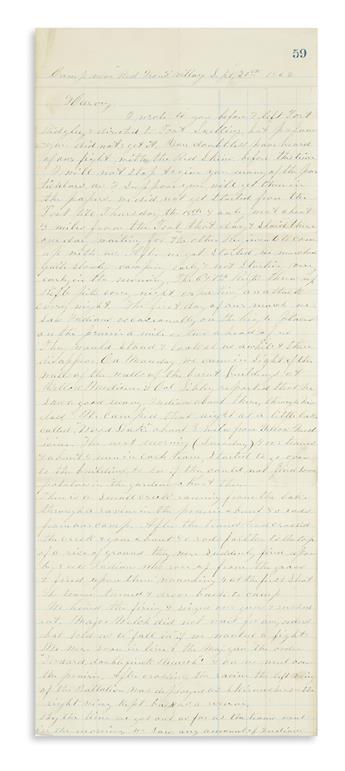 59
Camp near Red Iron's Village Sept 25th 1862
Harvey
I wrote to you before I left Fort
Ridgley & directed to Fort Snelling but perhaps
you did not get it. You doubtless have heard
of our fight with the Red Skins before this time
I will not stop to give you many of the par
ticulars as I suppose you will get them in
the papers. We did not get started from the
Fort till Thursday the & only went about
3 miles from the Fort that day & staid there
one day waiting for the other regiments to come
up with us. After we got started we marched
quite slowly camping early & not starting very
early in the morning. The Col kept throwing
up rifle pits every night
every night. The first day of our march we
saw Indians occasionally on the high places
on the prairie a mile or two ahead of us
They would stand & look at us awhile & then
disappear. On Monday we came in sight of the
walls of the burnt buildings at
Yellow Medicine & Col Sibley reported that he
saw a good many Indians about there, though he
said. We camped that night at a little lake
called "Wood Lake" about 3 miles from Yellow Medi
icine. The next morning (Tuesday) some teams
& about men in each team, started to go over
to the buildings to see if they could not find some
potatoes in the gardens about there.
There is a small creek running from the lake
through a ravine in the prairie about 80 rods
from our camp. After the teams had crossed
the creek & gone about 80 rods farther to the top
of a rise of ground they were suddenly fired upon
by Indians who rose up from the grass
& fired upon them wounding at the first shot
The teams turned & drove back to camp
We heard the firing & seized our guns & rushed
out. Major Welch did not wait for any orders
but told us to "fall in" if we wanted a fight
We were soon in line & the Maj gave the order
"Forward, double quick March" & on we went over
the prairie. After crossing the ravine the left wing
of the Battalion was deployed as skirmishers & the
right wing kept back as a reserve
By the time we got out as far as the teams went
in the morning we saw any amount of Indians